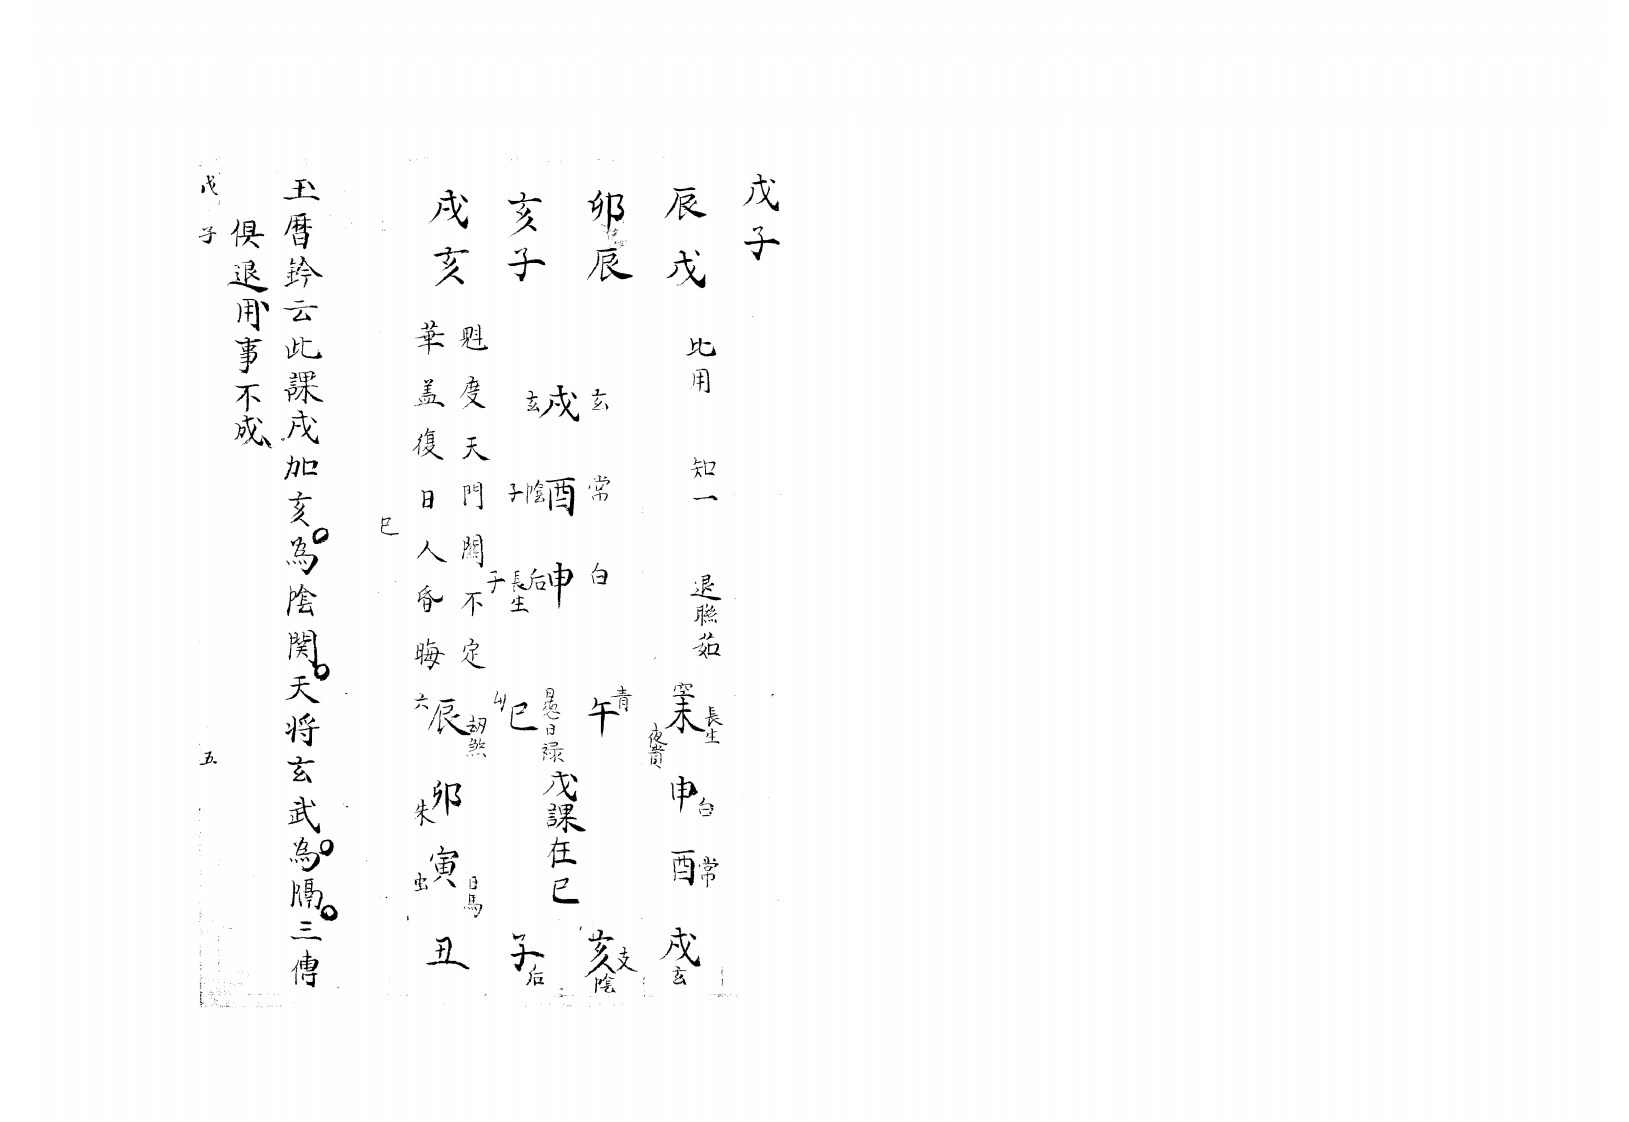 戊子
辰戊 比用 知一 退聯茹
卯辰
亥子
戌亥
玄 常 白
戌 酉 申
玄 陰 后
子 長生
子
魁度天門關不定
華盖復日人昏晦
巳
空未長生 夜貴
申白
酉常
戌玄
午青
亥支陰
日德日禄
戊課在巳
巳
子后
六辰劫煞
朱卯
虫寅日馬
丑
玉暦鈐云此課戌加亥為陰関天将玄武為隔三傳
俱退用事不成
戊子 五